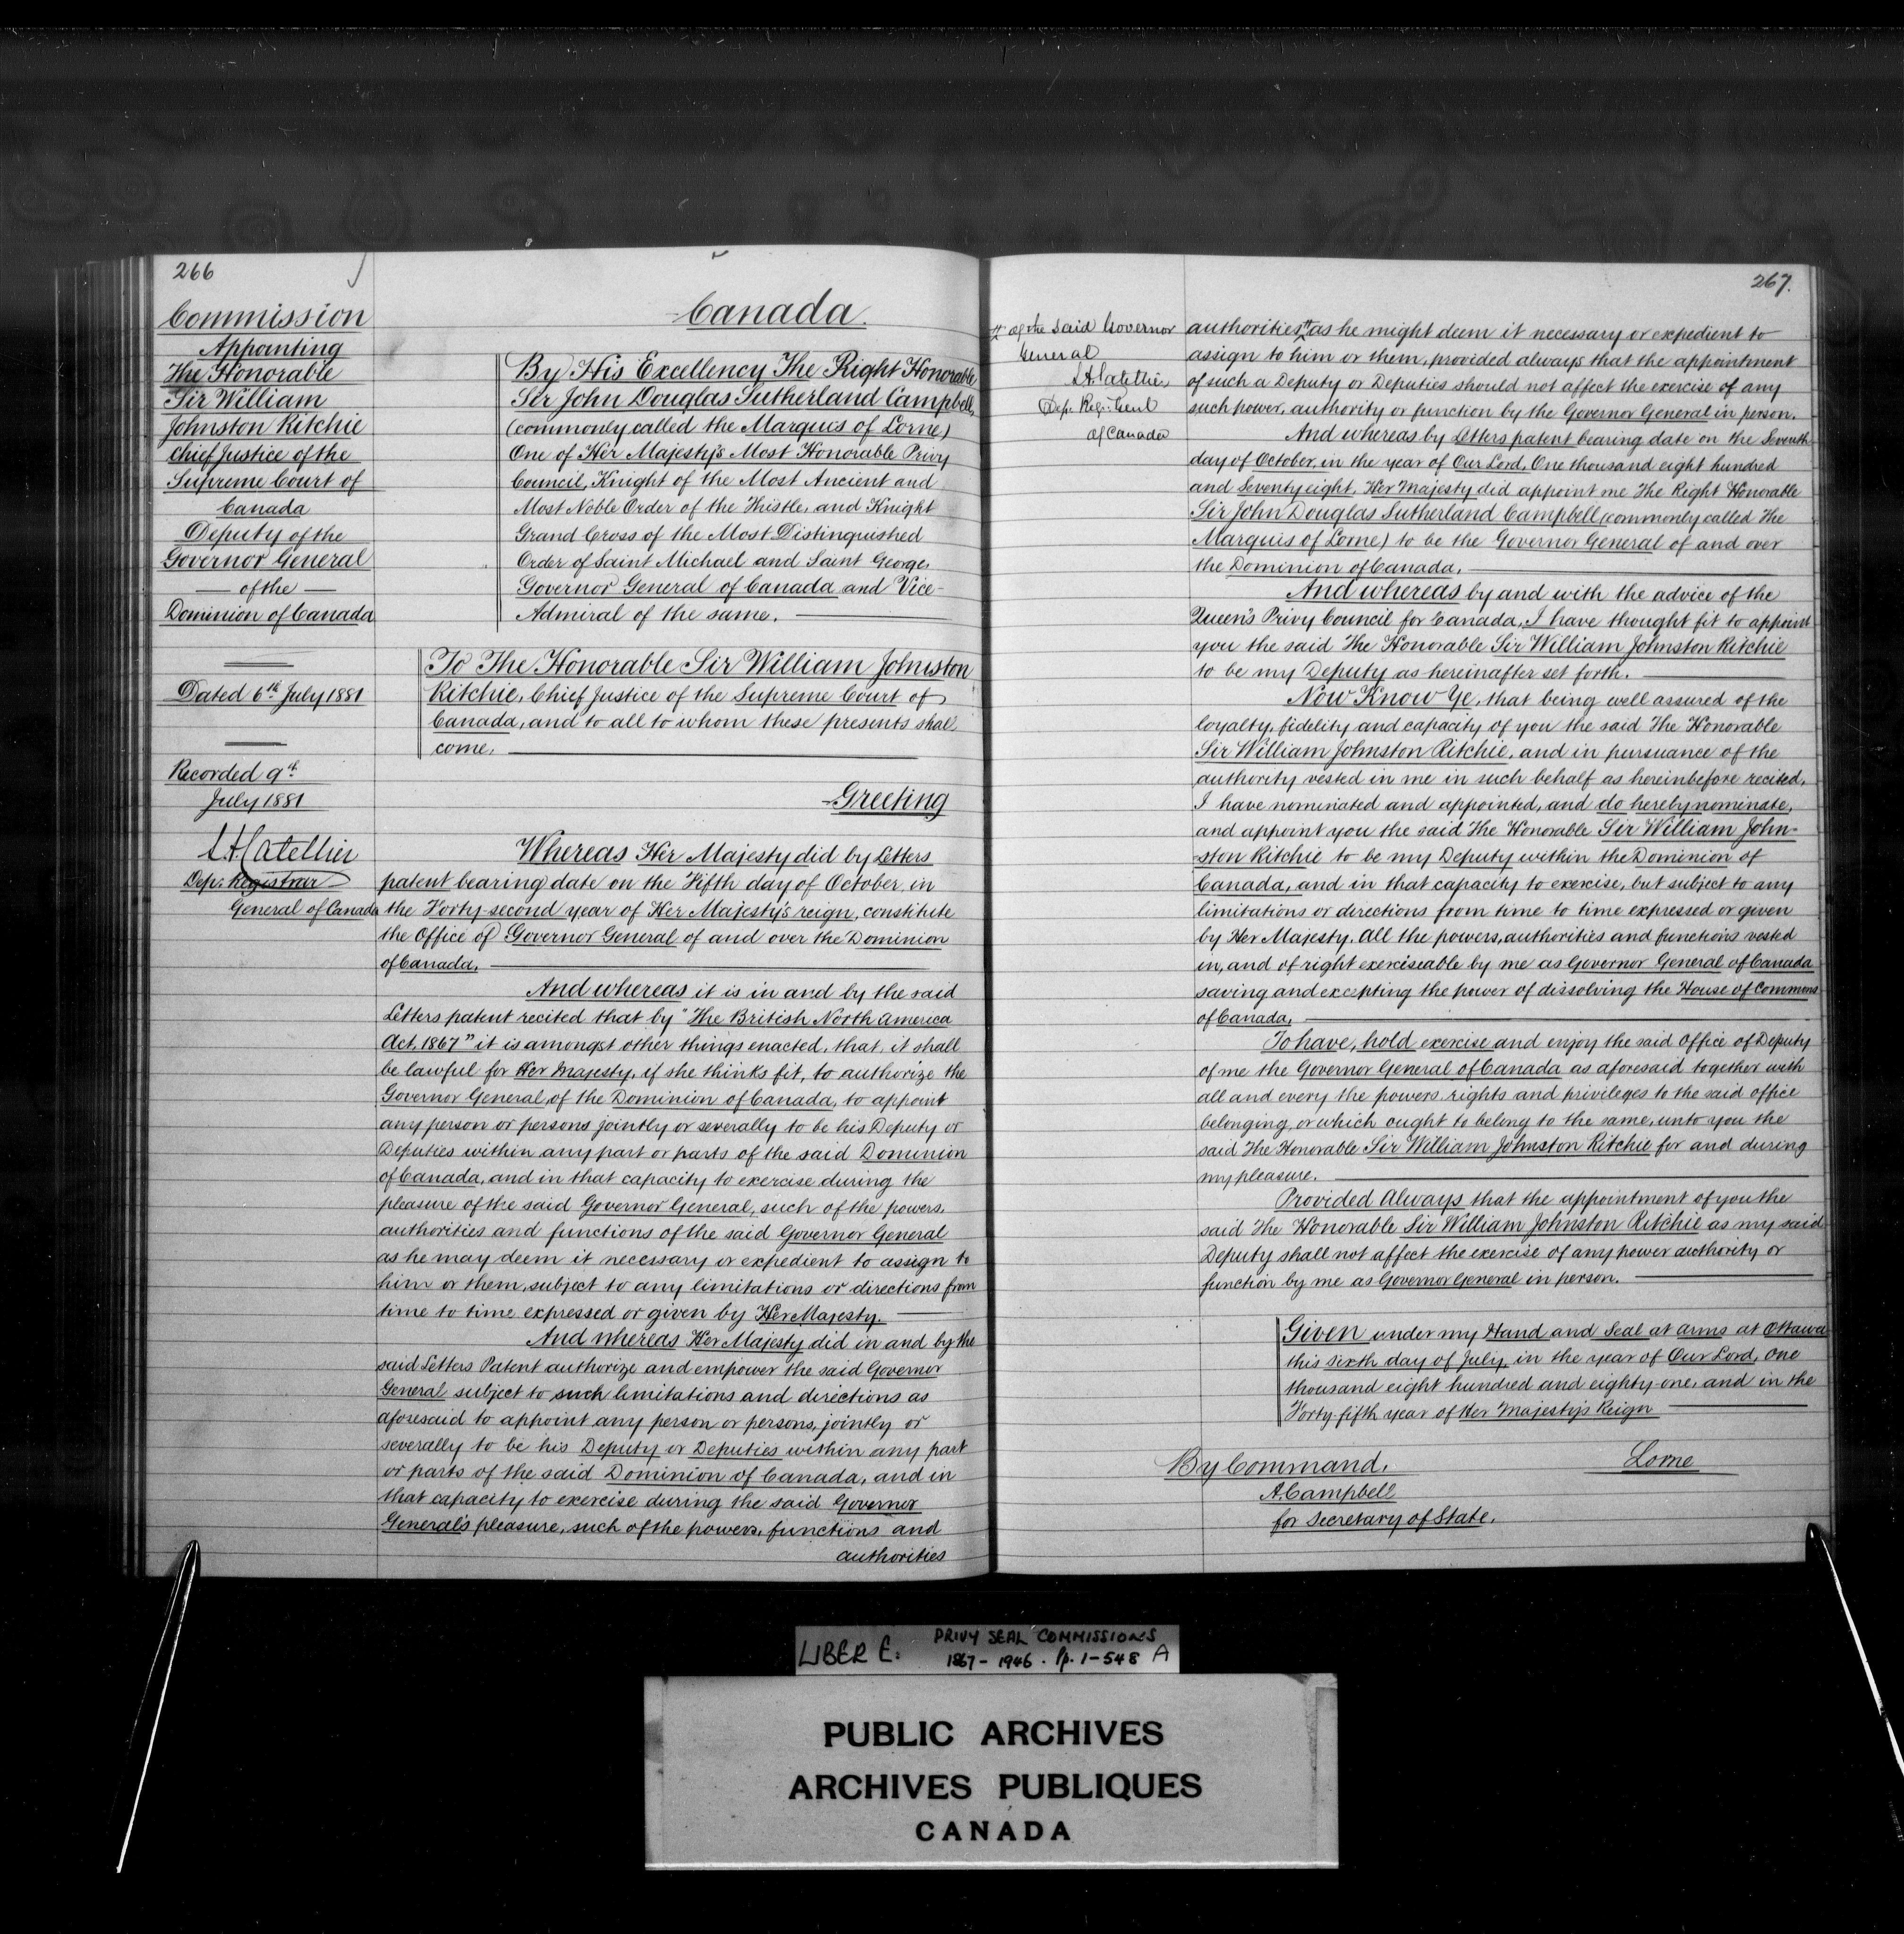 266
Commission
Appointing
The Honorable
Sir William
Johnston Ritchie
Chief Justice of the
Supreme Court of
Canada
Deputy of the
Governor General
of the
Dominion of Canada
Dated 6th July 1881
Recorded 9th
July 1881
Dep. Registrar
General of Canada
Canada.
By His Excellency The Right Honorable
Sir John Douglas Sutherland Campbell,
(commonly called the Marquis of Lorne)
One of Her Majesty's Most Honorable Privy
Council, Knight of the Most Ancient and
Most Noble Order of the Thistle, and Knight
Grand Cross of the Most Distinguished
Order of Saint Michael and Saint George,
Governor General of Canada and Vice-
Admiral of the same.
To The Honorable Sir William Johnston
Ritchie, Chief Justice of the Supreme Court of
Canada, and to all to whom these presents shall
come,
Greeting
Whereas Her Majesty did by Letters
patent bearing date on the Fifth day of October, in
the Forty-second year of Her Majesty's reign, constitute
the Office of Governor General of and over the Dominion
of Canada.
And whereas it is in and by the said
Letters patent recited that by "The British North America
Act, 1867" it is amongst other things enacted, that, it shall
be lawful for Her Majesty, if she thinks fit, to authorize the
Governor General, of the Dominion of Canada, to appoint
any person or persons jointly or severally to be his Deputy or
Deputies within any part or parts of the said Dominion
of Canada, and in that capacity to exercise during the
pleasure of the said Governor General, such of the powers,
authorities and functions of the said Governor General
as he may deem it necessary or expedient to assign to
him or them, subject to any limitations or directions from
time to time expressed or given by Her Majesty.
And whereas Her Majesty did in and by the
said Letters Patent authorize and empower the said Governor
General subject to such limitations and directions as
aforesaid to appoint any person or persons, jointly or
severally to be his Deputy or Deputies within any part
or parts of the said Dominion of Canada, and in
that capacity to exercise during the said Governor
General's pleasure, such of the powers, functions and
authorities
267.
# of the said Governor
General
Dep. Reg. Genl
of Canada
authorities # as he might deem it necessary or expedient to
assign to him or them, provided always that the appointment
of such a Deputy or Deputies should not affect the exercise of any
such power, authority or function by the Governor General in person.
And whereas by Letters patent bearing date on the Seventh
day of October, in the year of Our Lord, One thousand eight hundred
and Seventy eight, Her Majesty did appoint me The Right Honorable
Sir John Douglas Sutherland Campbell (commonly called The
Marquis of Lorne) to be the Governor General of and over
the Dominion of Canada.
And whereas by and with the advice of the
Queen's Privy Council for Canada, I have thought fit to appoint
you the said The Honorable Sir William Johnston Ritchie
to be my Deputy as hereinafter set forth.
Now Know Ye, that being well assured of the
loyalty, fidelity and capacity of you the said The Honorable
Sir William Johnston Ritchie, and in pursuance of the
authority vested in me in such behalf as hereinbefore recited,
I have nominated and appointed, and do hereby nominate,
and appoint you the said The Honorable Sir William John-
-ston Ritchie to be my Deputy within the Dominion of
Canada, and in that capacity to exercise, but subject to any
limitations or directions from time to time expressed or given
by Her Majesty, all the powers, authorities and functions vested
in, and of right exerciseable by me as Governor General of Canada
saving and excepting the power of dissolving the House of Commons
of Canada,
To have, hold exercise and enjoy the said Office of Deputy
of me the Governor General of Canada as aforesaid together with
all and every the powers rights and privileges to the said office
belonging, or which ought to belong to the same, unto you the
said The Honorable Sir William Johnston Ritchie for and during
my pleasure.
Provided Always that the appointment of you the
said The Honorable Sir William Johnston Ritchie as my said
Deputy shall not affect the exercise of any power authority or
function by me as Governor General in person.
Given under my Hand and Seal at Arms at Ottawa
this sixth day of July, in the year of Our Lord, One
thousand eight hundred and eighty-one, and in the
Forty fifth year of Her Majesty's Reign
Lorne
By Command,
A. Campbell
for Secretary of State.
LIBER E: PRIVY SEAL COMMISSIONS
1867-1946. Pp. 1-548 A
PUBLIC ARCHIVES
ARCHIVES PUBLIQUES
CANADA